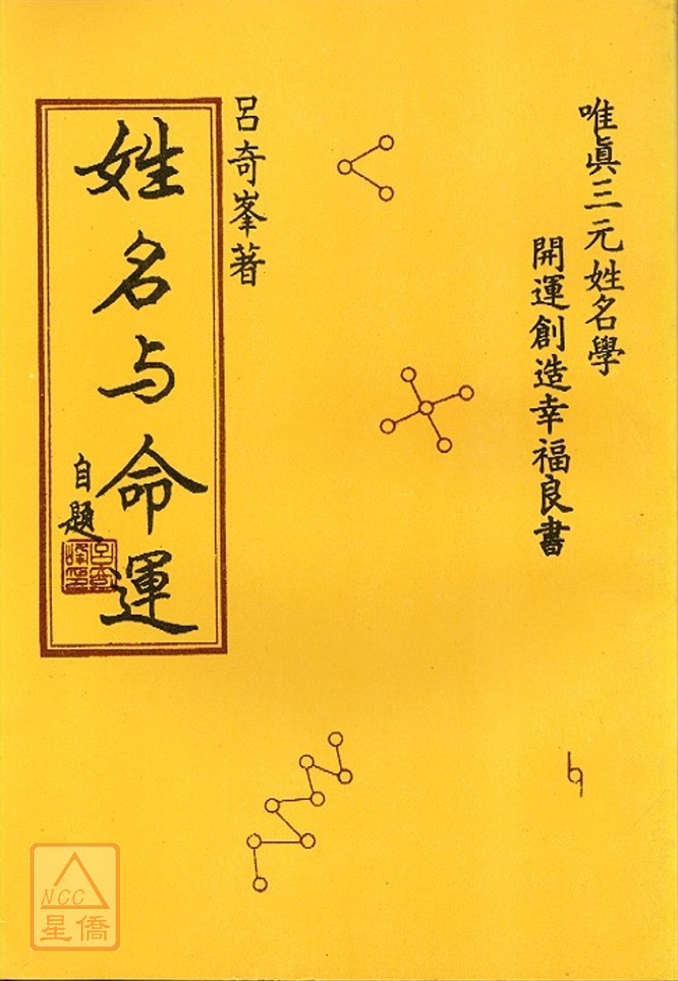 唯眞三元姓名學
開運創造幸福良書
呂奇峯著
姓名与命運
自題
NCC
星僑